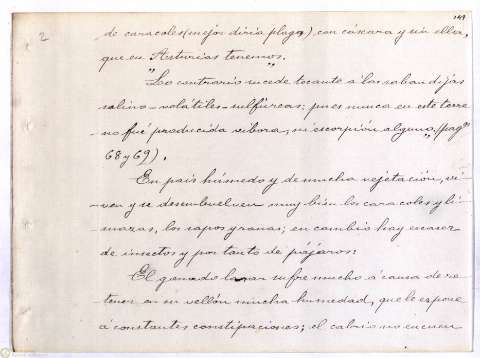 149
2
de caracoles (mejor diría plaga), con cáscara y sin ella,
que en Asturias tenemos."
"Lo contrario sucede tocante á las sabandijas
salino-volátiles-sulfúreas: pues nunca en este terre-
-no fué producida vibora, ni escorpión alguno" (pags
68 y 69).
En pais húmedo y de mucha vejetación, vi-
-ven y se desenvuelven muy bien los caracoles y li-
mazas, los sapos y ranas; en cambio hay escasez
de insectos y por tanto de pájaros.
El ganado lanar sufre mucho á causa de re-
-tener en su vellón mucha humedad, que le expone
á constantes constipaciones; el cabrio no